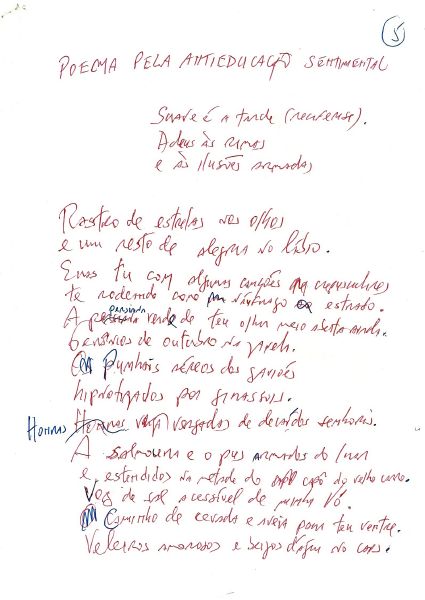 5
POEMA PELA ANTIEDUCAÇÃO SENTIMENTAL
Suave é a tarde (recifense).
Adeus às rimas
e às ilusões armadas
Rastro de estrelas nos olhos
e um resto de alegria no lábio.
Eras tu com algumas canções crepusculares
te rodeando como náufrago estrado.
A persiana verde de teu olhar meio
6 outubro na janela.
Punhais aéreos dos gaviões
hipnotizados por girassóis.
HORINAS vergadas de senhoris.
A salmoura e o armados do
e estendidos na metade do capô do velho carro.
Voz de sal acessível de minha Vó.
Caminho de cevada e aveia para teu ventre.
Veleiros amorosos e beijos d'água no cais.